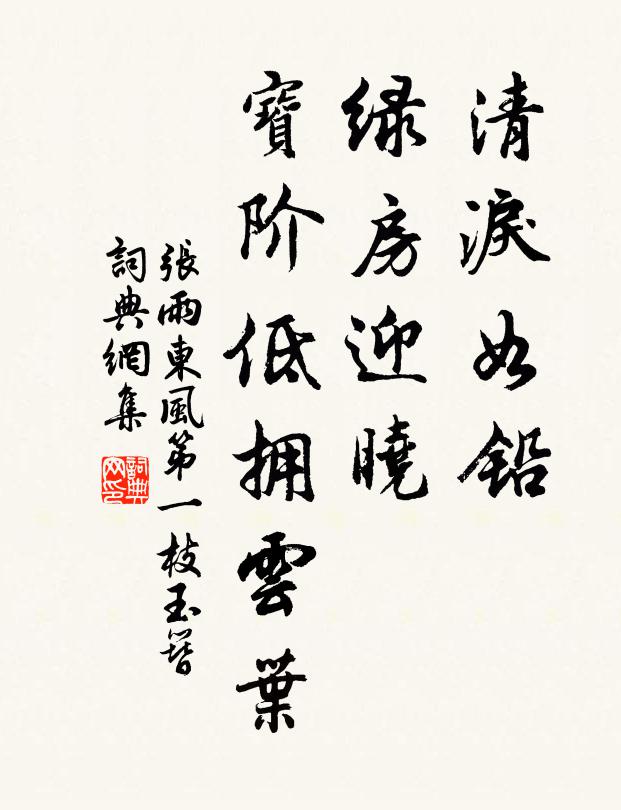 清淚如鉛
緑房迎曉
寶阶低拥雲葉
張雨東風第一枝玉簪
詞典網集
詞典网印